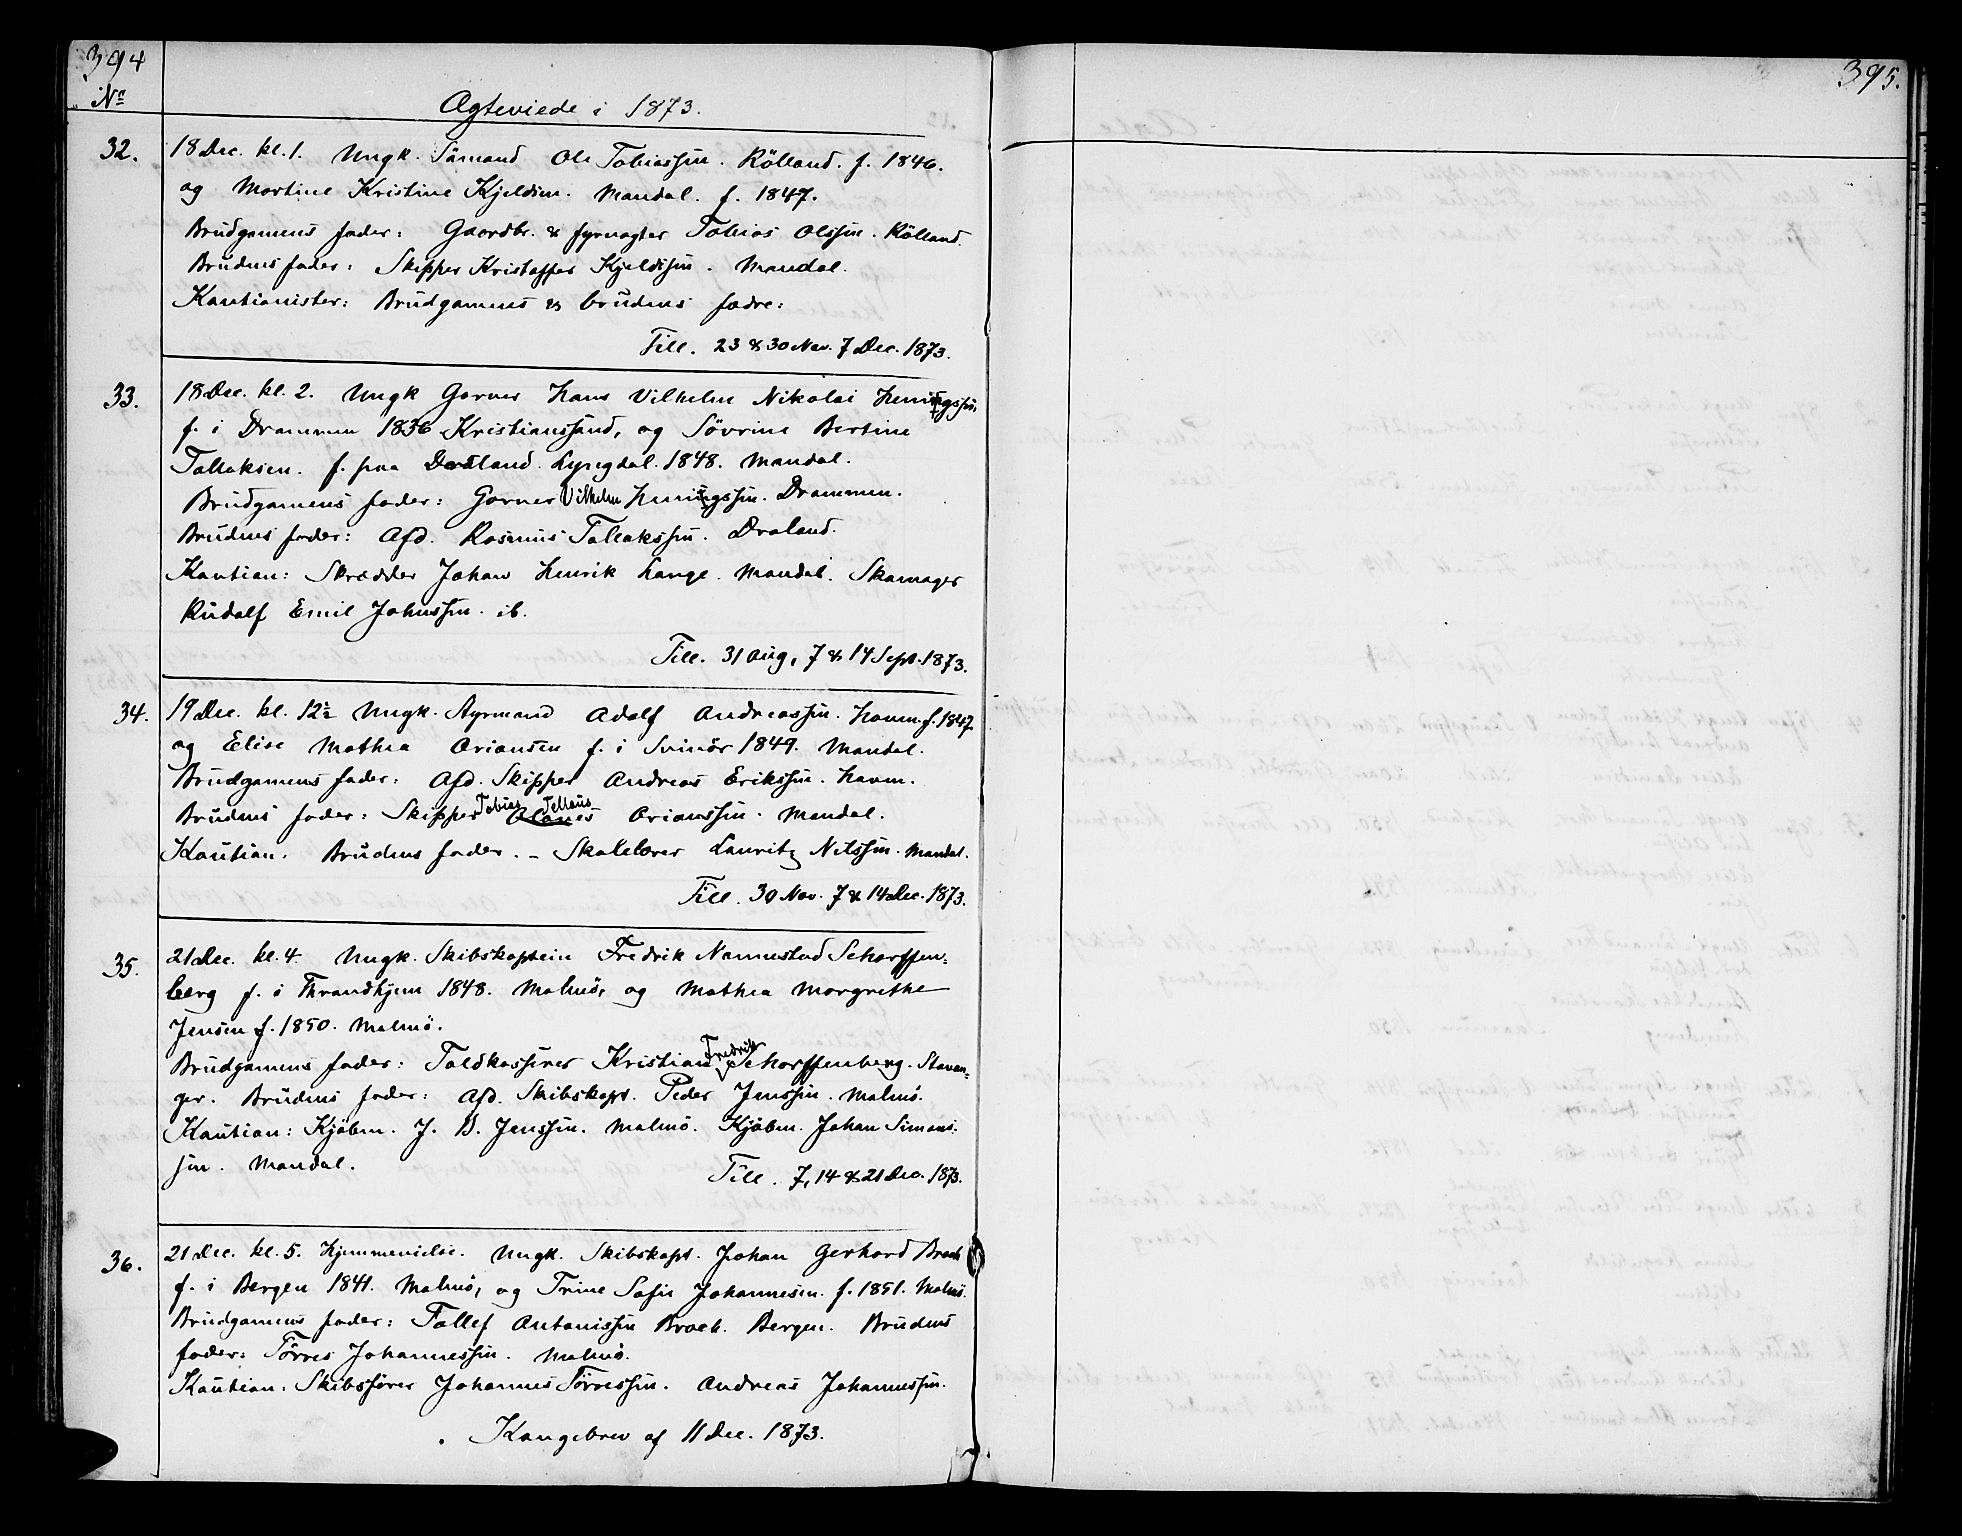 394
No
Agteviede i 1873.
32. 18 Dec. kl. 1. Ungk. Sömand Ole Tobiassen. Kölland. f. 1846.
og Martine Kristine Kjeldsen. Mandal. f. 1847.
Brudgomens fader: Gaardbr. & fyrvogter Tobias Olssen. Kölland.
Brudens fader: Skipper Kristoffer Kjeldssen. Mandal.
Kautionister: Brudgomens & brudens fædre:
Till. 23 & 30 Nov. 7 Dec. 1873.
33. 18 Dec. kl. 2. Ungk Garver Hans Vilhelm Nikolai Henningssen,
f. i Drammen 1836 Kristianssand, og Sövrine Bertine
Tallaksen. f. paa Draland. Lyngdal. 1848. Mandal.
Brudgomens fader: Garver Vilhelm Henningssen. Drammen.
Brudens fader: Afd. Rasmus Tallakssen. Draland.
Kaution: Skrædder Johan Henrik Lange. Mandal. Skomager
Rudolf Emil Johnssen. ib.
Till. 31 Aug, 7 & 14 Sept. 1873.
34. 19 Dec. kl. 12½ Ungk. Styrmand Adolf Andreassen. Havn. f. 1847.
og Elise Mathea Oriansen f. i Svinör 1849. Mandal.
Brudgomens fader: Afd. Skipper Andreas Erikssen. Havn.
Brudens fader: Skipper Tobias Tellaus Orianssen. Mandal.
Kaution. Brudens fader. – Skolelærer Lauritz Nilssen. Mandal.
Till. 30 Nov. 7 & 14 Dec. 1873.
35. 21 Dec. kl. 4. Ungk. Skibskaptein Fredrik Nannestad Scharffen-
berg f. i Thrandhjem 1848. Malmö, og Mathea Margrethe
Jensen f. 1850. Malmö.
Brudgomens fader: Toldkasserer Kristian Fredrik Scharffenberg. Stavan-
ger. Brudens fader: Afd. Skibskapt. Peder Jenssen. Malmö.
Kaution: Kjöbm. J. B. Jenssen. Malmö. Kjöbm. Johan Simons-
sen. Mandal.
Till. 7, 14 & 21 Dec. 1873.
36. 21 Dec. kl. 5. Hjemmevielse. Ungk. Skibskapt. Johan Gerhard Broch
f. i Bergen 1841. Malmö, og Trine Sofie Johannesen. f. 1851. Malmö.
Brudgomens fader: Tollef Antonissen Broch. Bergen. Brudens
fader: Törres Johannessen. Malmö.
Kaution: Skibsförer Johannes Törressen. Andreas Johannessen.
Kongebrev af 11 Dec. 1873.
395.